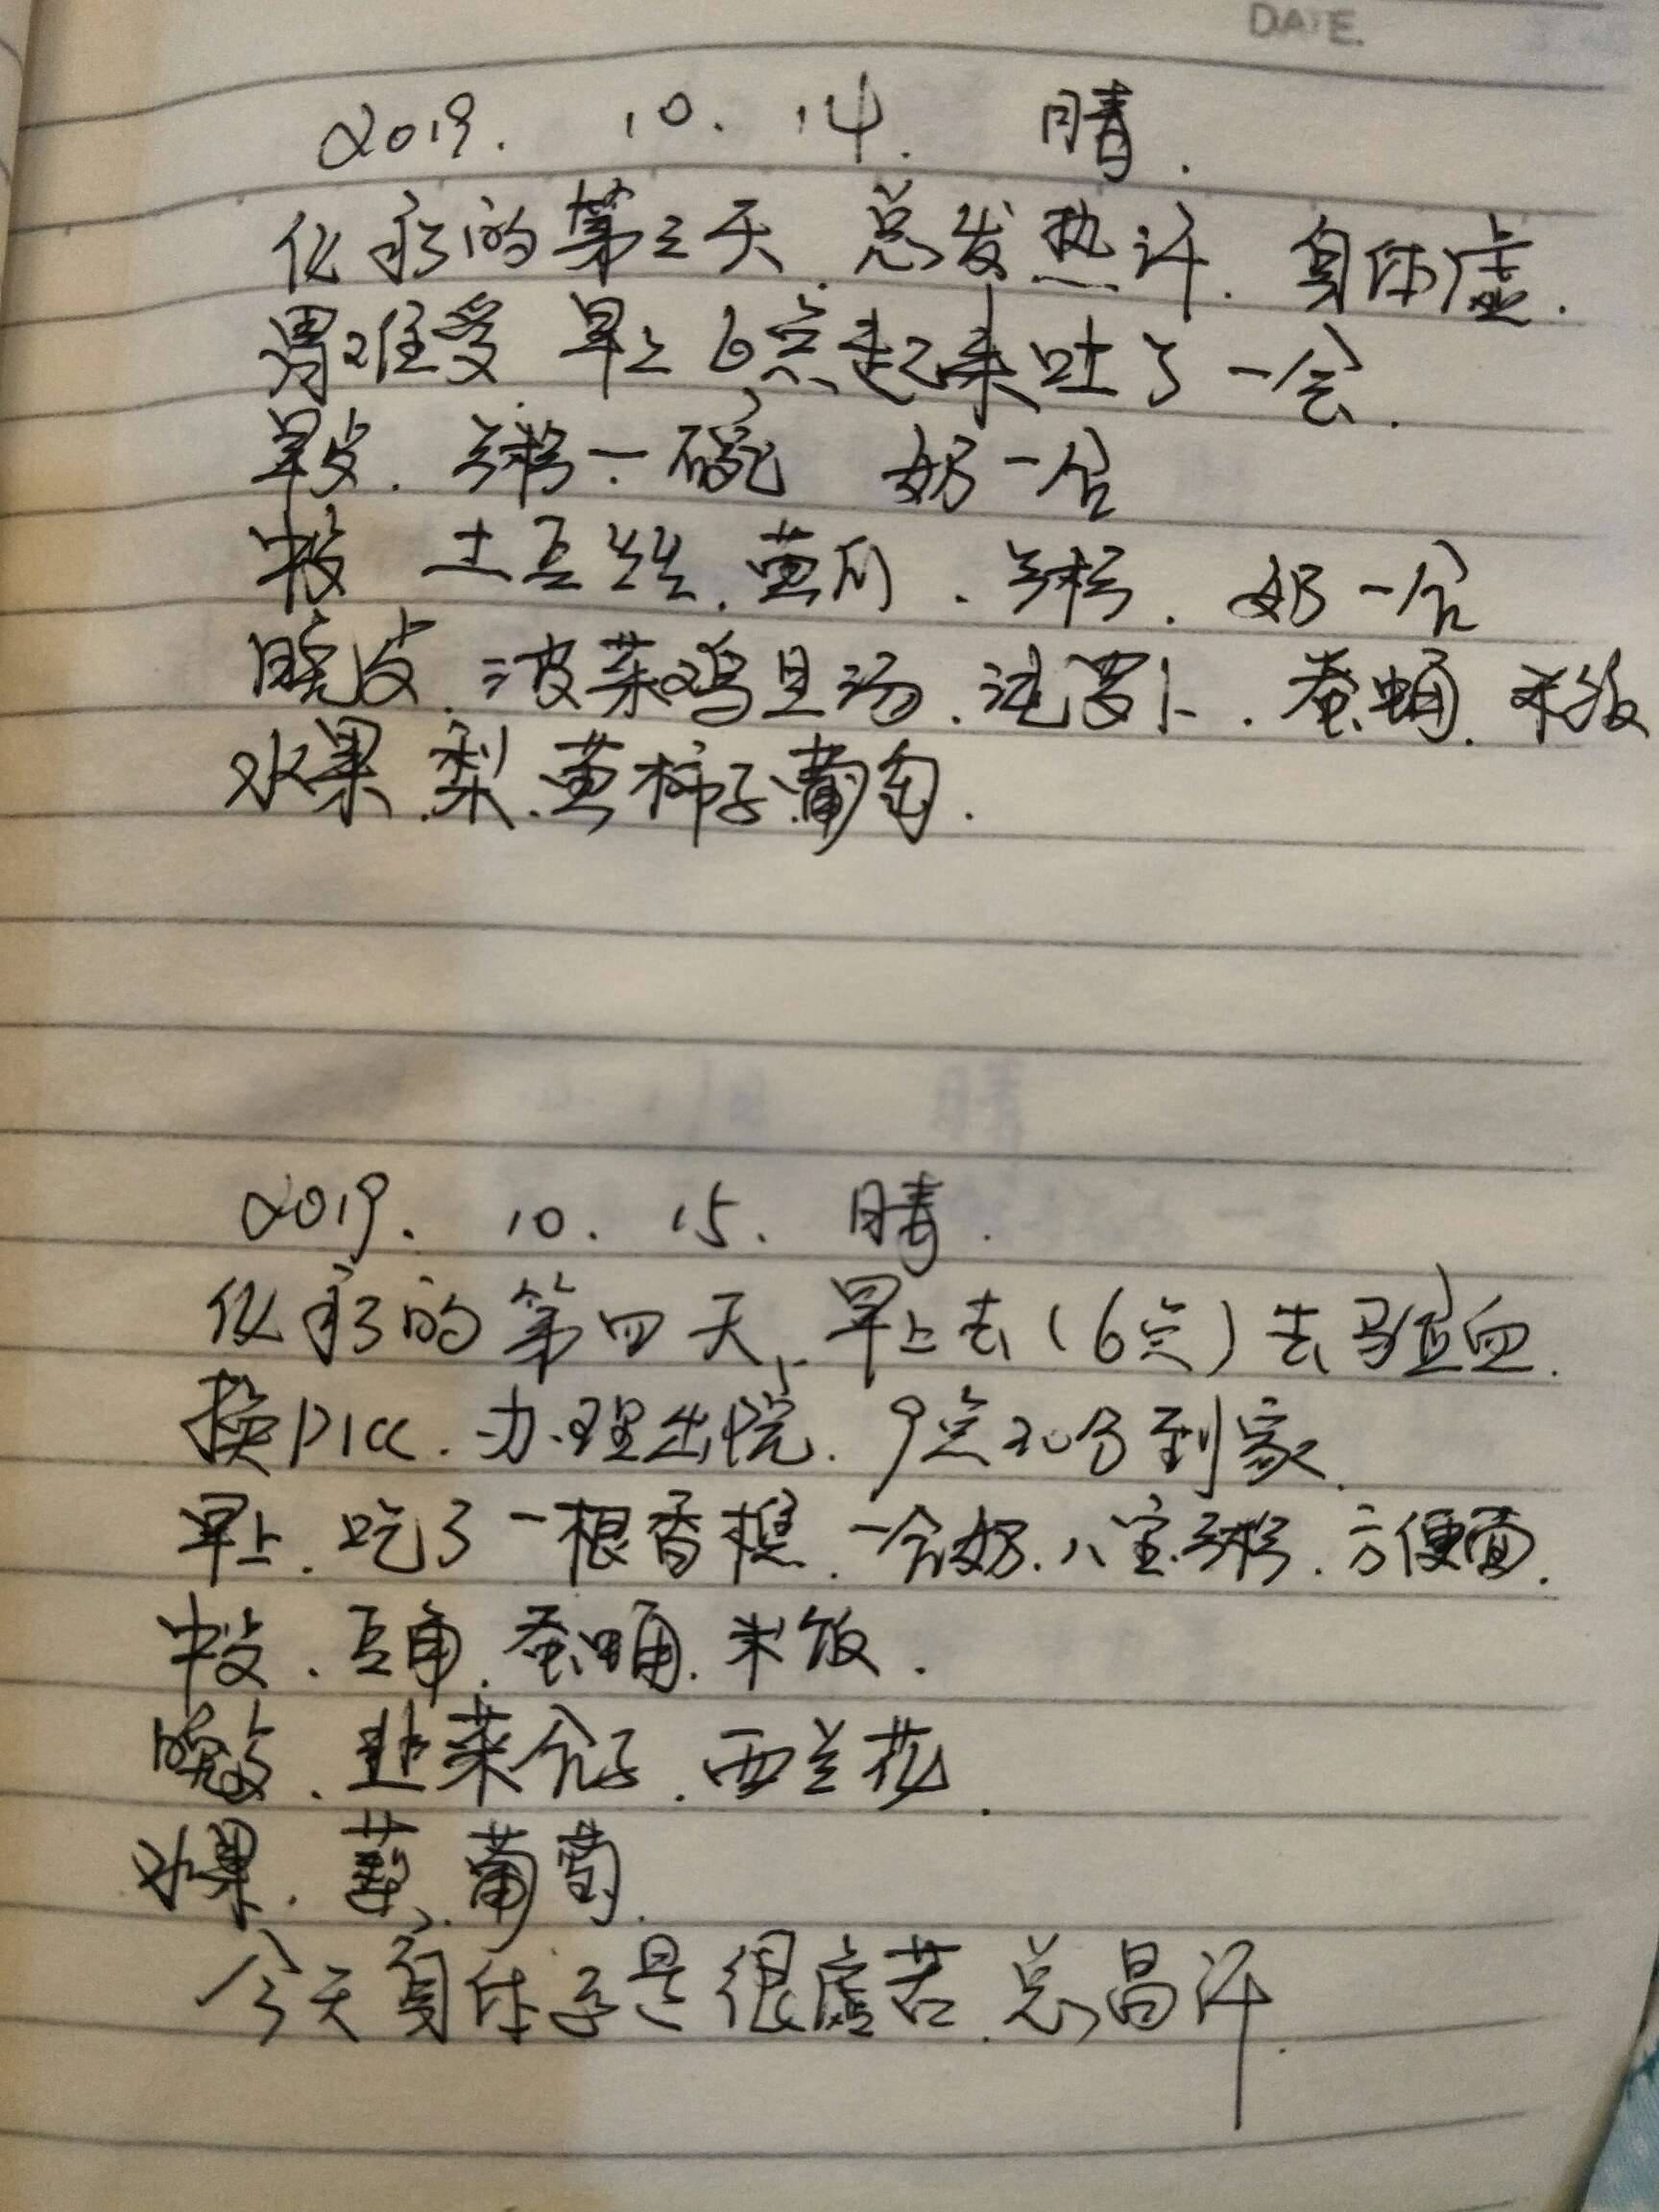 DATE
2019. 10. 14. 晴.
化疗的第三天.总发热汗.身体虚.
胃难受 早上6点起来吐了一会.
早饭.粥一碗 奶一合
中饭 土豆丝.黄瓜.粥.奶一合
晚饭.菠菜鸡旦汤.炖罗卜.蚕蛹.米饭
水果.梨.黄柿子.葡萄.
2019. 10. 15. 晴.
化疗的第四天.早上去(6点)去验血.
换PICC.办理出院.9点20分到家.
早上.吃了一根香蕉.一合奶.八宝粥.方便面.
中饭.豆角.蚕蛹.米饭.
晚饭.韭菜合子.西兰花.
水果.葡萄.
今天身体还是很虚苦.总冒汗.